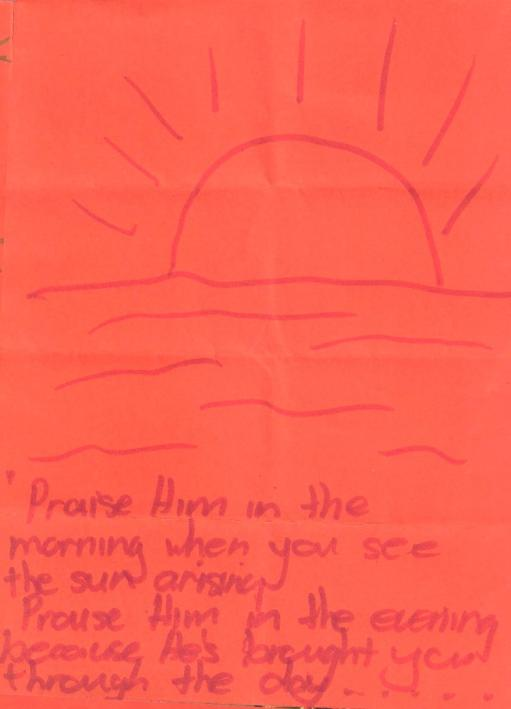 "Praise Him in the
morning when you see
the sun arising
Praise Him in the evening
because He's brought you
through the day.....